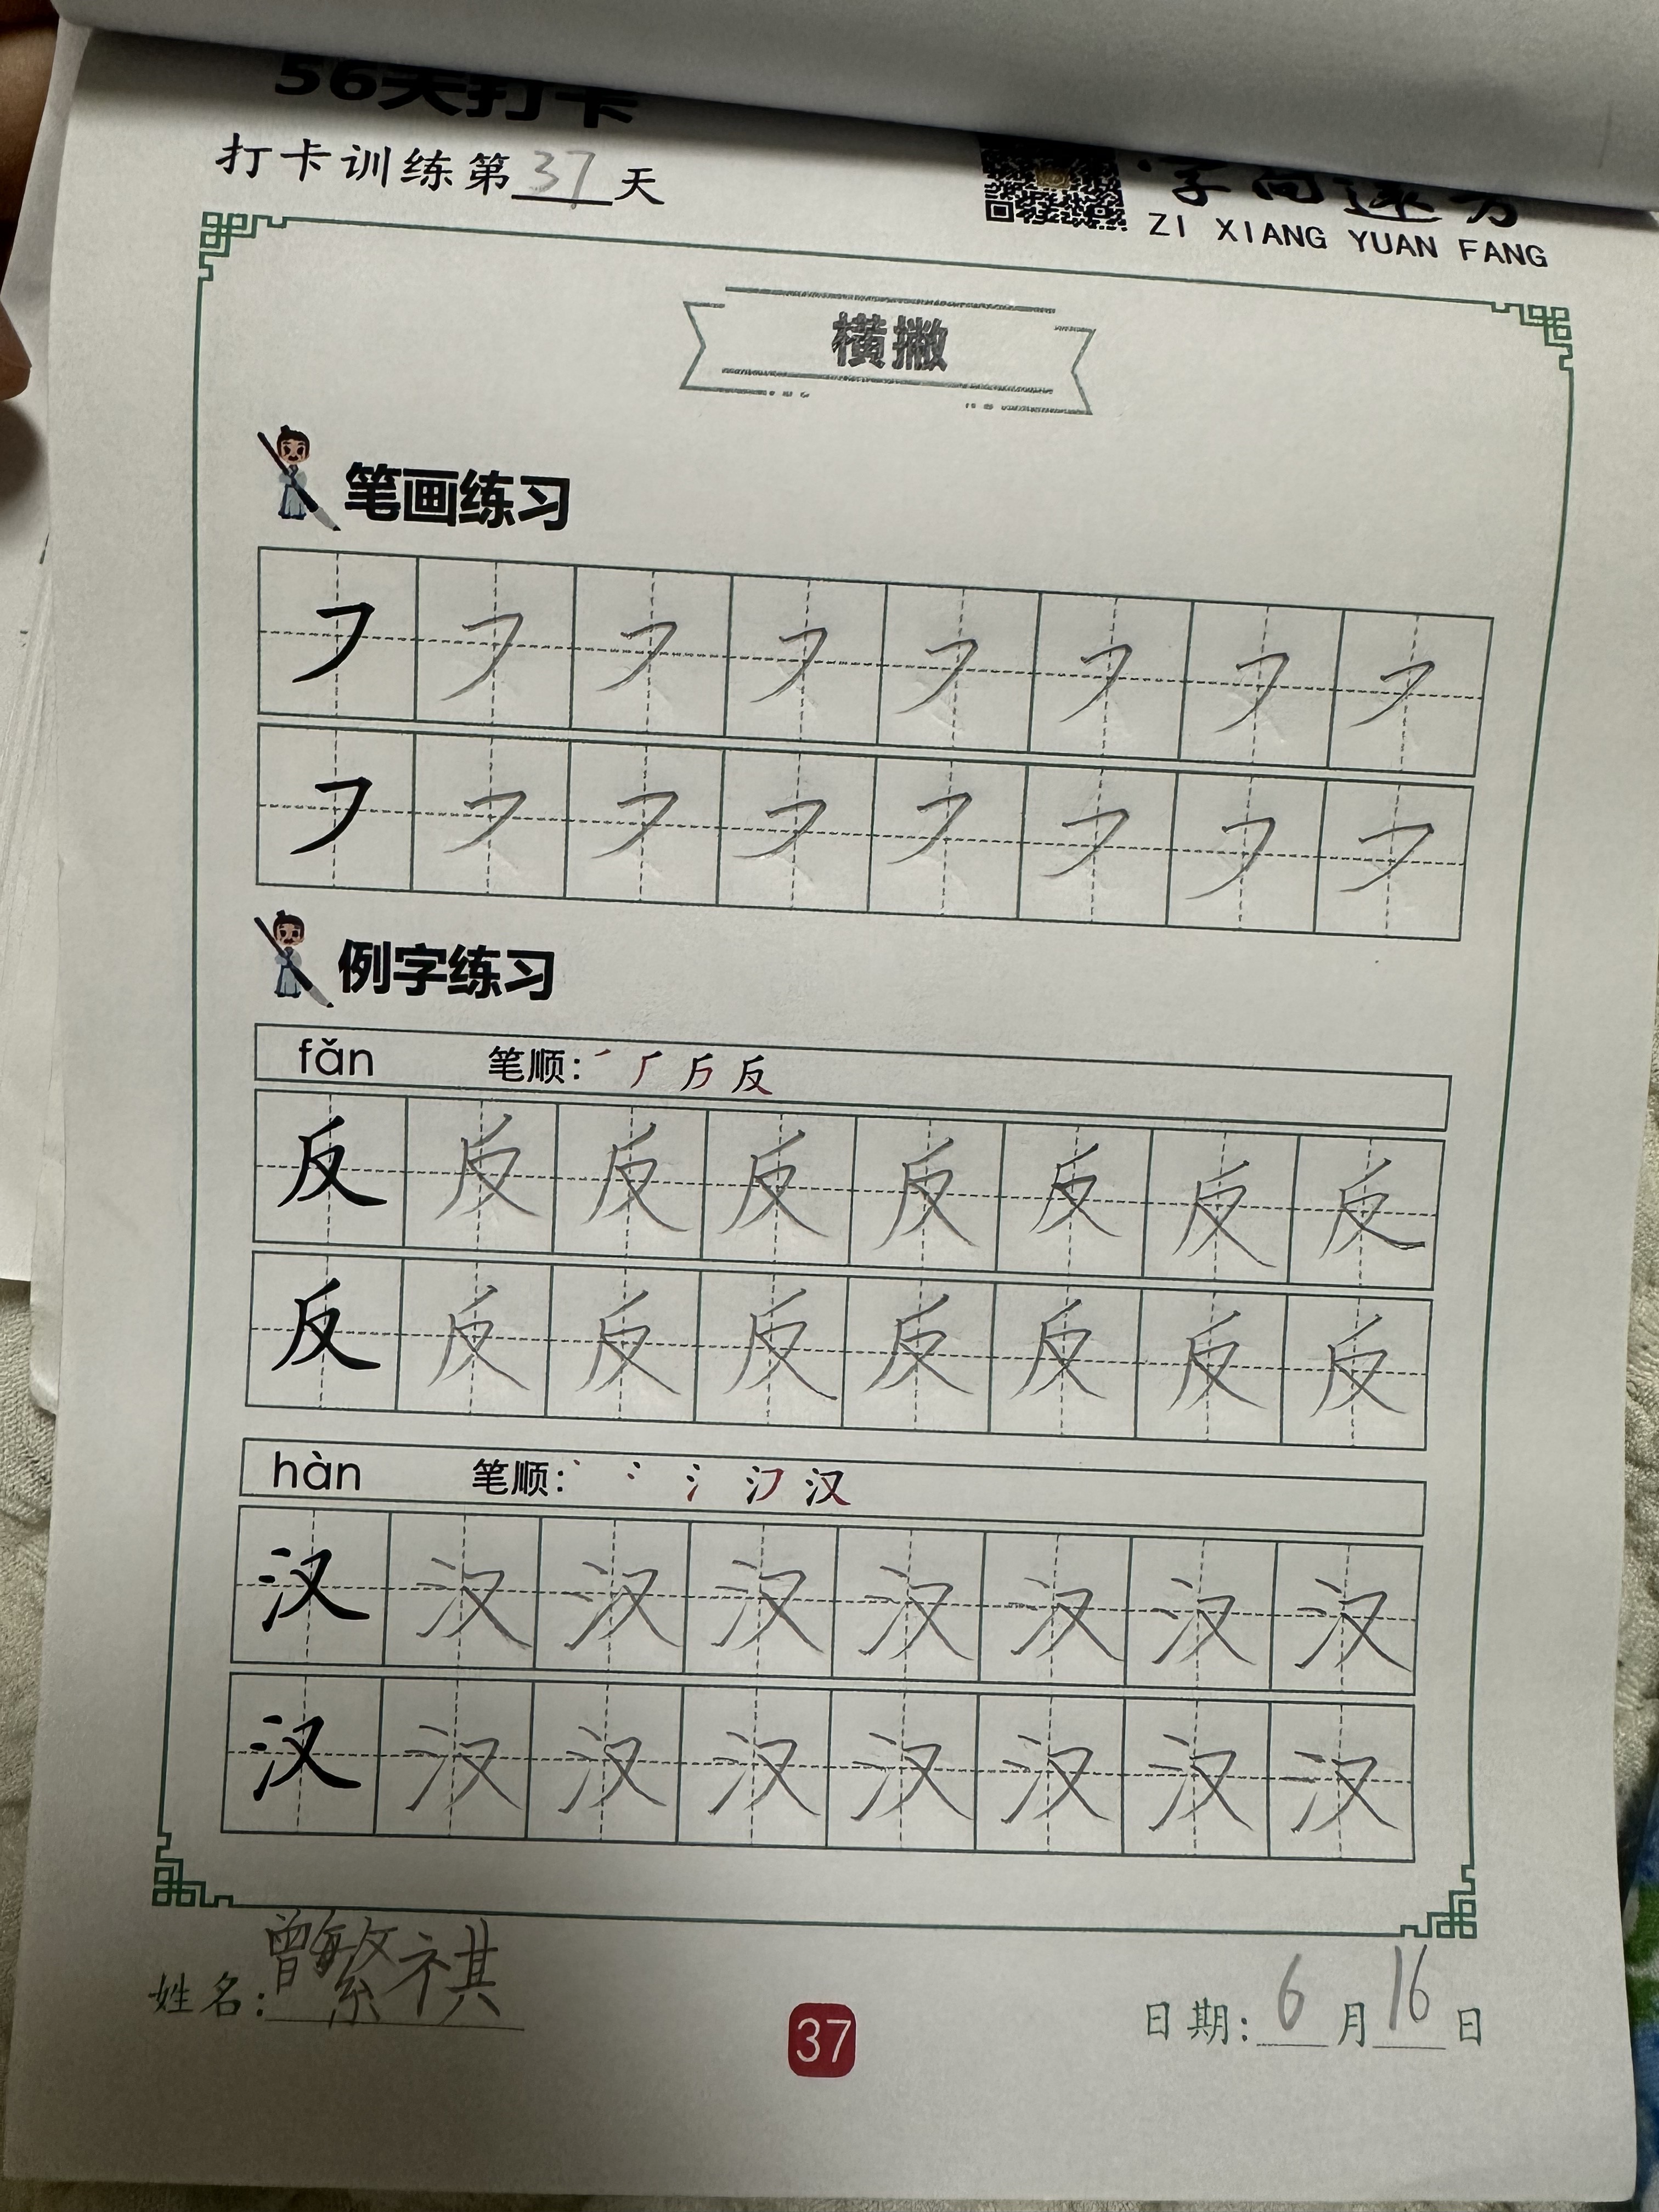 56天打卡
打卡训练第37天
字向远方
ZI XIANG YUAN FANG
横撇
笔画练习
㇇ ㇇ ㇇ ㇇ ㇇ ㇇ ㇇ ㇇
㇇ ㇇ ㇇ ㇇ ㇇ ㇇ ㇇ ㇇
例字练习
fǎn 笔顺: 反
反 反 反 反 反 反 反 反
反 反 反 反 反 反 反 反
hàn 笔顺: 汉
汉 汉 汉 汉 汉 汉 汉 汉
汉 汉 汉 汉 汉 汉 汉 汉
姓名:曾繁祺
37
日期:6月16日